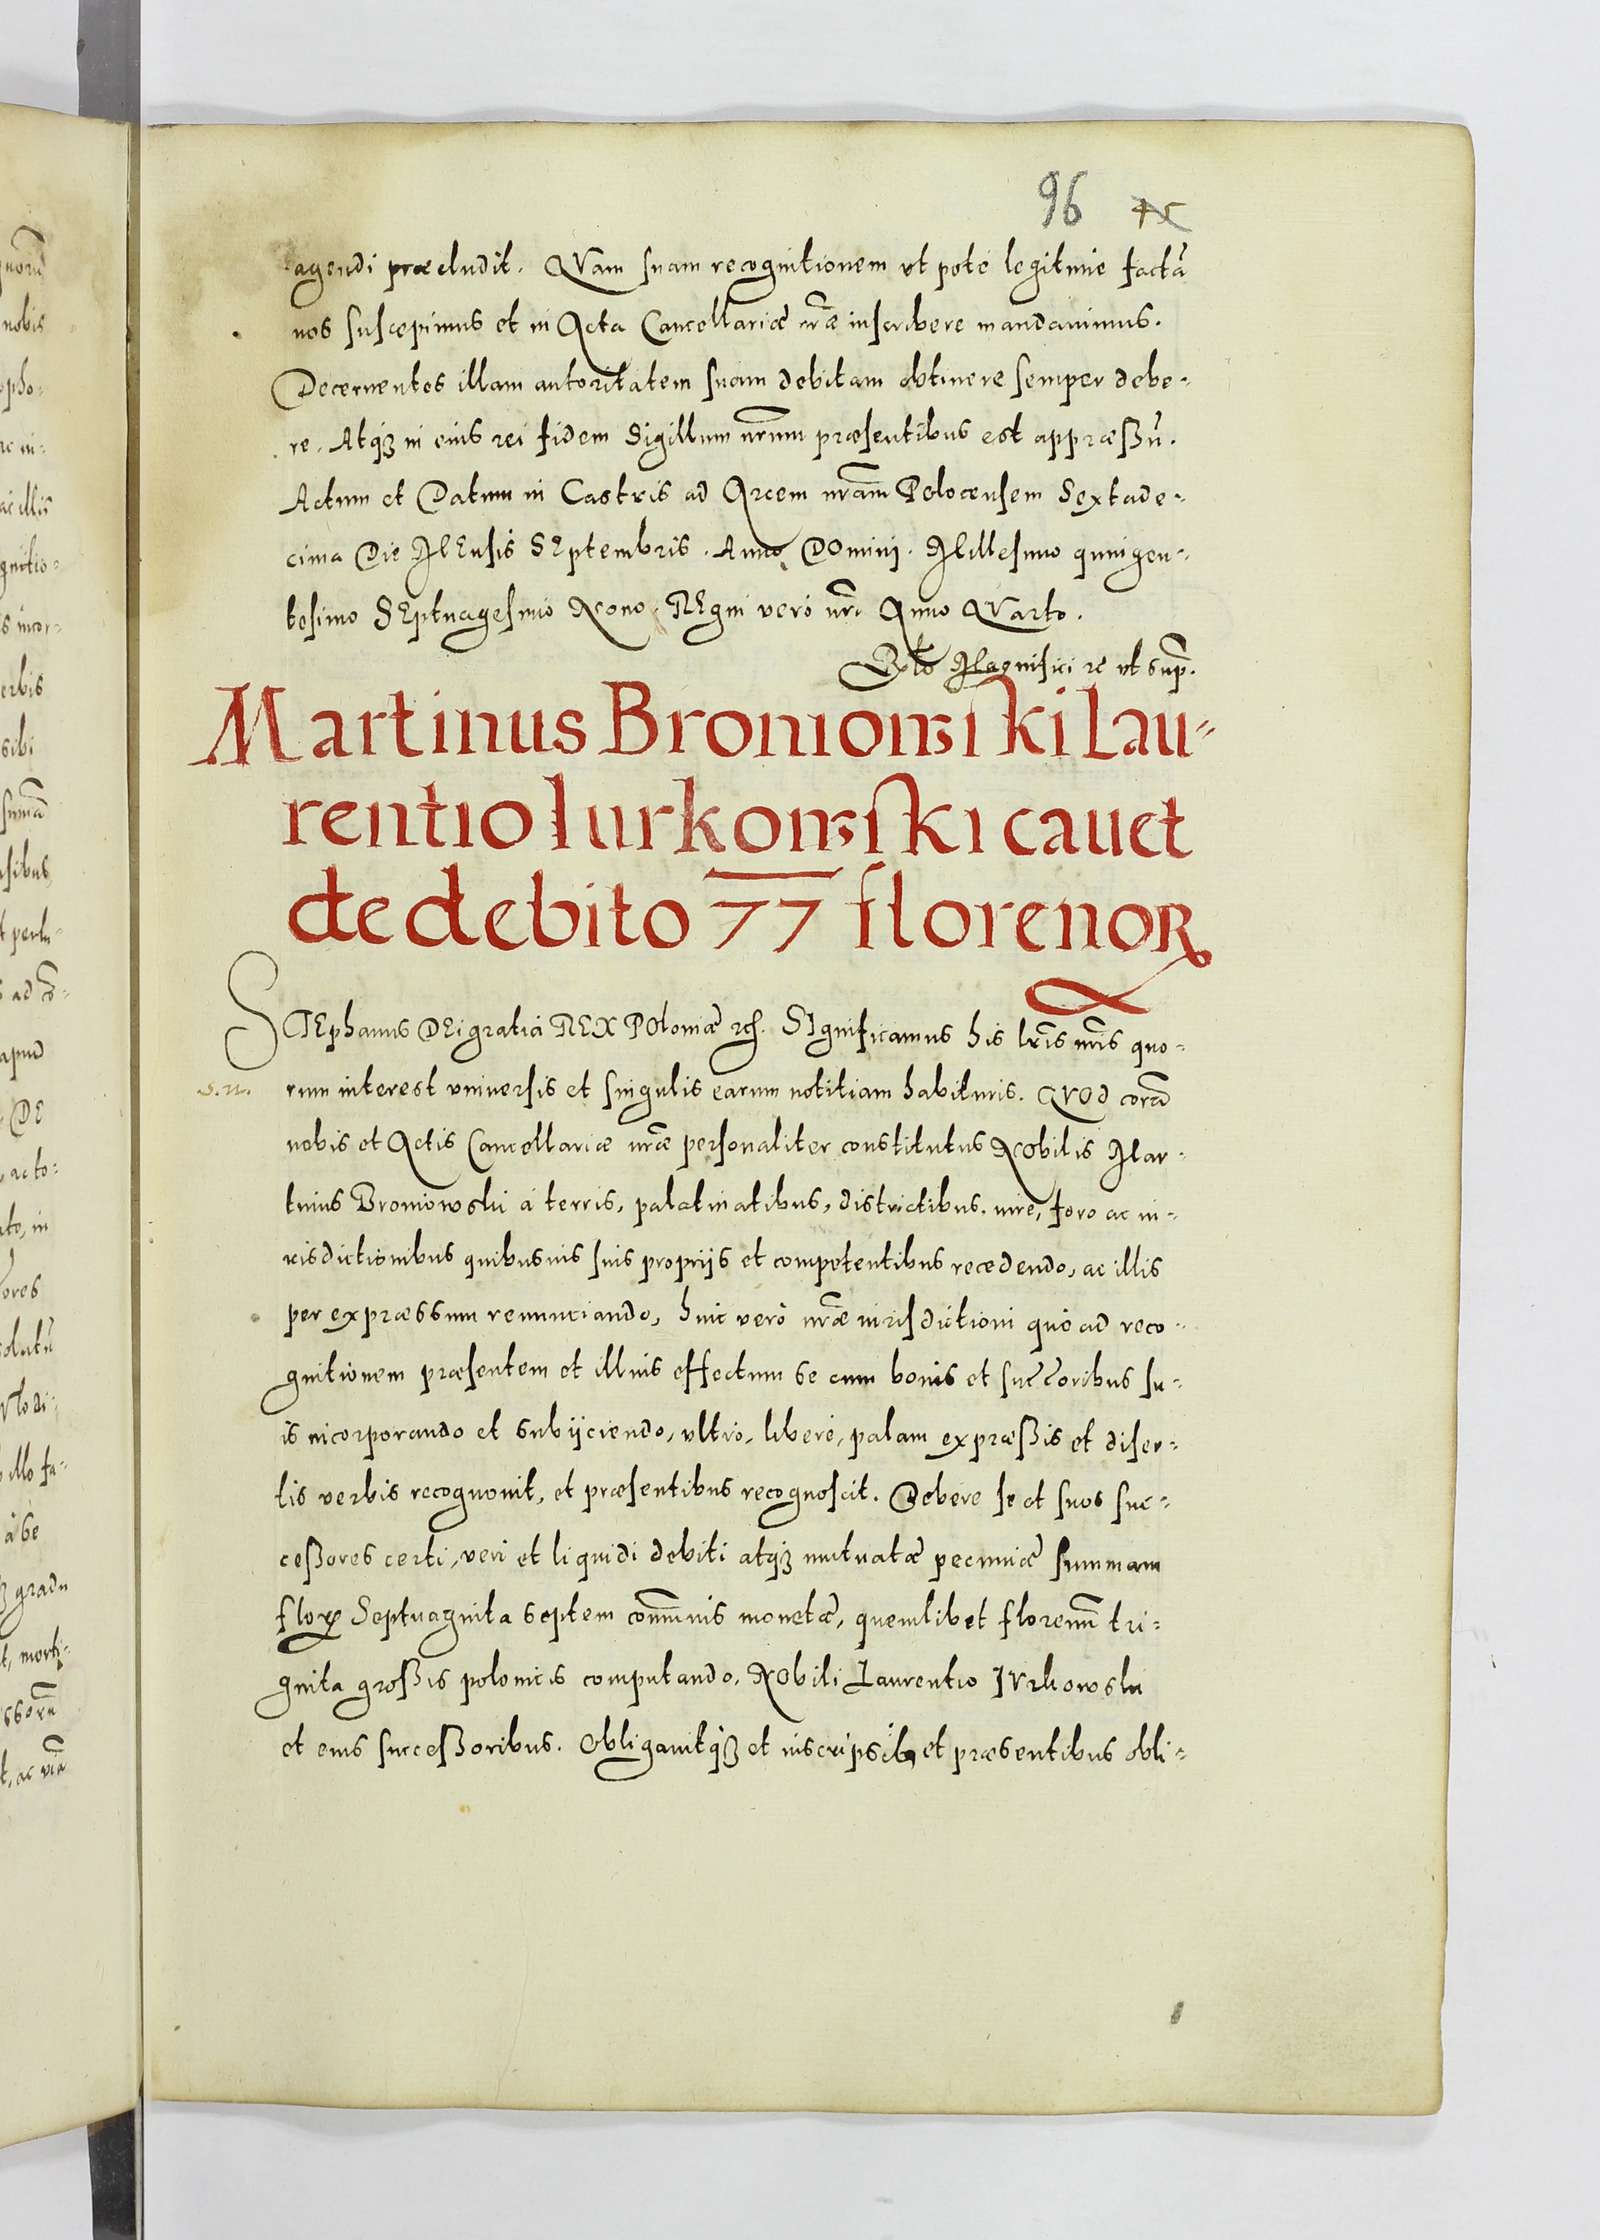 96
agendi præcludit. QVam suam recognitionem ut poté legitimè factã
nos suscepimus et in Acta Cancellariæ nr̃æ inscribere mandavimus.
Decernentes illam autoritatem suam debitam obtinere semper debe-
re. Atqȝ in eius rei fidem Sigillum nr̃um præsentibus est appræßũ.
Actum et Datum in Castris ad Arcem nr̃am Polocensem Sextade-
cima Die MEnsis SEptembris. Anno DOmini. Millesimo quingen-
tesimo SEptuagesimo Nono. REgni verò nr̃i Anno QVarto.
Rl̃o Magnifici ꝛc ut sup̃.
Martinus Broniowski Lau-
rentio Iurkowski cauet
de debito 77 florenoꝝ
STEphanus DEi gratia REX POloniæ ꝛcꝭ. SIgnificamus his lr̃is nr̃is quo-
rum interest vniuersis et singulis earum notitiam habituris. QVOd corã
nobis et Actis Cancellariæ nr̃æ personaliter constitutus NObilis Mar-
tinus Broniowski à terris, palatinatibus, districtibus. iure, foro ac iu-
risdictionibus quibusuis suis proprijs et competentibus recedendo, ac illis
per expræssum renunciando, huic verò nr̃æ iurisdictioni quò ad reco-
gnitionem præsentem et illius effectum se cum bonis et succ̃oribus su-
is incorporando et subijciendo, ultrò, liberè, palam expræßis et diser-
tis verbis recognouit, et præsentibus recognoscit. Debere se et suos suc-
ceßores certi, veri et liquidi debiti atqȝ mutuatæ pecuniæ summam
floꝝ Septuaginta septem com̃unis monetæ, quemlibet florenũ tri-
ginta großis polonicis computando. NObili Laurentio IVrkowski
et eius succeßoribus. Obligauitqȝ et inscripsit, et præsentibus obli-
S. N.